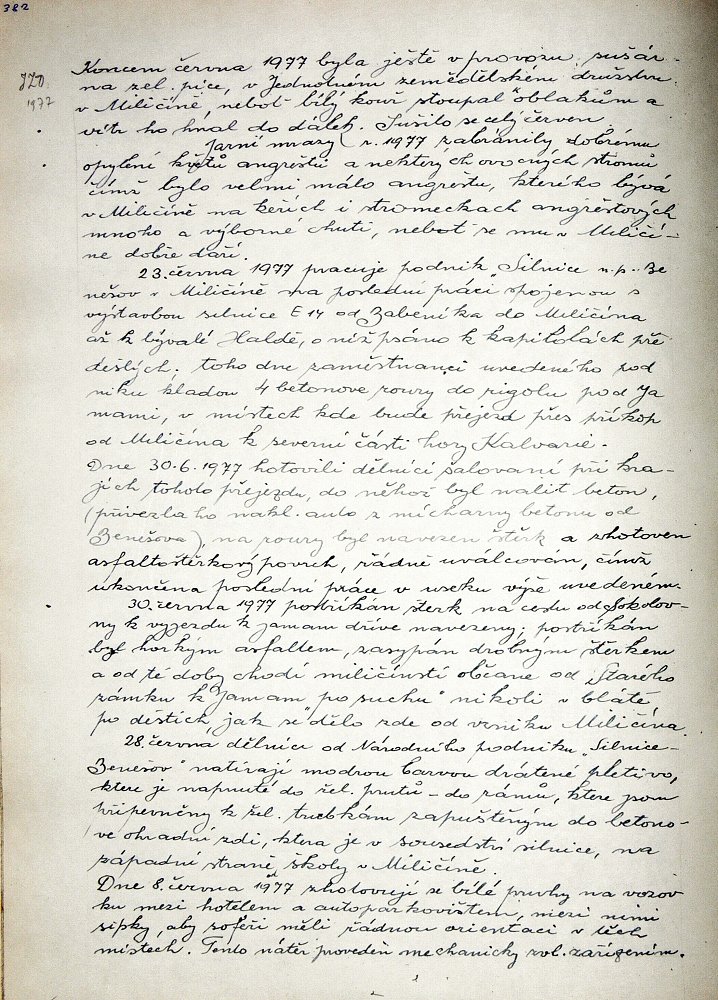 382
JZD.
1977
Koncem června 1977 byla ještě v provozu sušár-
na zel. píce, v Jednotném zemědělském družstvu
v Miličíně, neboť bílý kouř stoupal oblakům a
vítr ho hnal do dálek. Sušilo se celý červen.
Jarní mrazy r. 1977 zabránily dobrému
opylení květů angreštů a některých ovocných stromů
čímž bylo velmi málo angreštu, kterého bývá
v Miličíně na keřích i stromečkach angreštových
mnoho a výborné chuti, neboť se mu v Miličí-
ně dobře daří.
23. června 1977 pracuje podnik „Silnice n.p. Be
nešov v Miličíně na poslední práci spojenou s
výstavbou silnice E 14 od Zabeníka do Miličína
až k bývalé Haldě, o níž psáno k kapitolách pře
dešlých; toho dne zaměstnanci uvedeného pod
niku kladou 4 betonové roury do rigolu pod Ja
mami, v místech kde bude přejezd přes příkop
od Miličína k severní části hory Kalvarie.
Dne 30.6.1977 hotovili dělníci šalovaní při kra-
jích tohoto přejezdu, do něhož byl nalit beton,
(přivezla ho nakl. auto z míchárny betonu od
Benešova), na roury byl navezen štěrk a zhotoven
asfaltoštěrkový povrch, řádně uválcován, čímž
ukončena poslední práce v úseku výše uvedeném.
30. června 1977 postříkán šterk na cestu od Sokolov-
ny k vyjezdu k jamam dříve navezený; postříkán
byl horkým asfaltem, zasypán drobným štěrkem
a od té doby chodí miličínstí občané od „Starého
zámku k Jamam po suchu" nikoli v blátě
po deštích, jak se dělo zde od vzniku Miličína.
28. června dělníci od Národního podniku „Silnice-
Benešov" natírají modrou barvou drátené pletivo,
ktere je napnuté do žel. prutů - do rámů, ktere jsou
připevněny k žel. trubkám zapuštěným do betono-
vé ohradní zdi, ktera je v sousedství silnice, na
západní straně školy v Miličíně.
Dne 8. června 1977 zhotovují se bílé pruhy na vozov
ku mezi hotelem a autoparkovištěm, mezi nimi
šipky, aby šoféři měli řádnou orientaci v těch
místech. Tento nátěr proveden mechanicky zvl. zařízením.